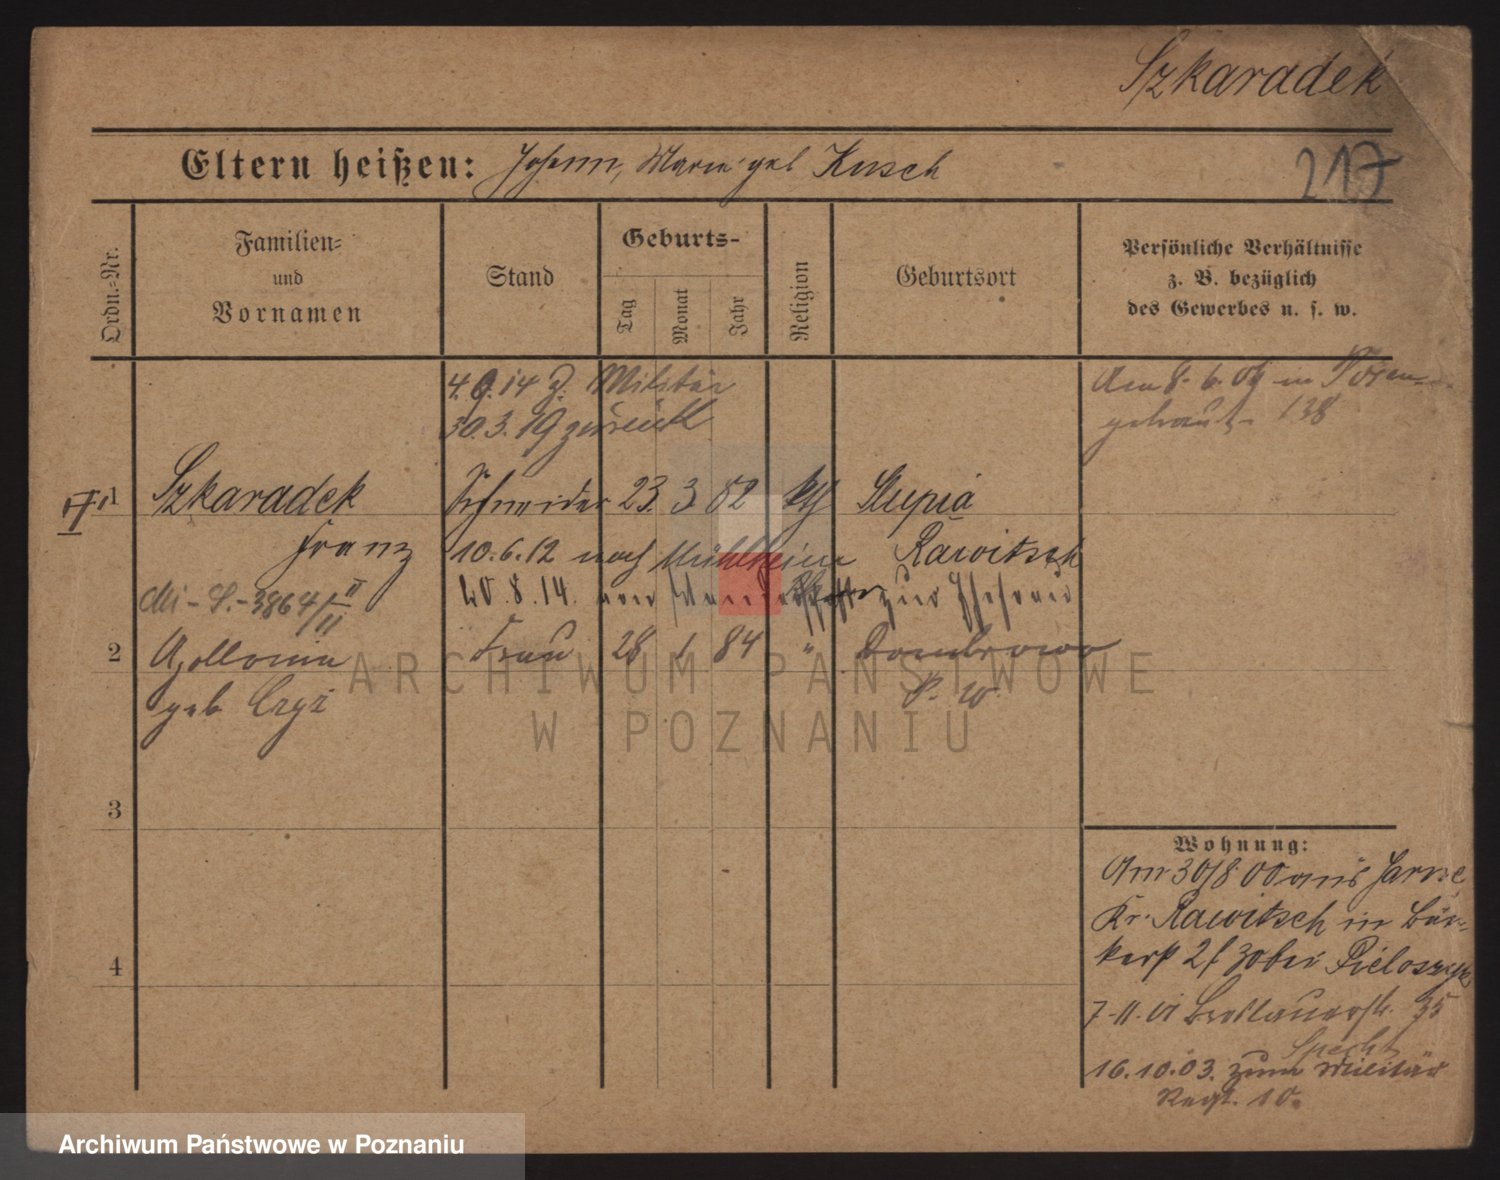 Szkaradek
Eltern heißen: Johann, Marie geb Kusch
217
Ordn.-Nr.
Familien-
und
Vornamen
Stand
Geburts-
Tag
Monat
Jahr
Religion
Geburtsort
Persönliche Verhältnisse
z. B. bezüglich
des Gewerbes u. s. w.
4. 14 z. Militär
30.3.19 zurück
Am 8. 6. in Posen
getraut 138
1
Szkaradek
Franz
Schneider 23. 3. 82 kth Slupia
Rawitsch
10.6.12 nach Mühlheim
20.8.14. von zur Ehefrau
3864/II
2
Apollonia
geb.
Frau 28 1 84 " Dombrowo
P. W.
3
4
Wohnung:
Am 30/8 00 aus
Kr. Rawitsch in
2/ bei
7.11. 01 Breslauerstr. 35
Specht
16.10.03. zum Militär
Regt. 10.
ARCHIWUM PAŃSTWOWE
W POZNANIU
Archiwum Państwowe w Poznaniu